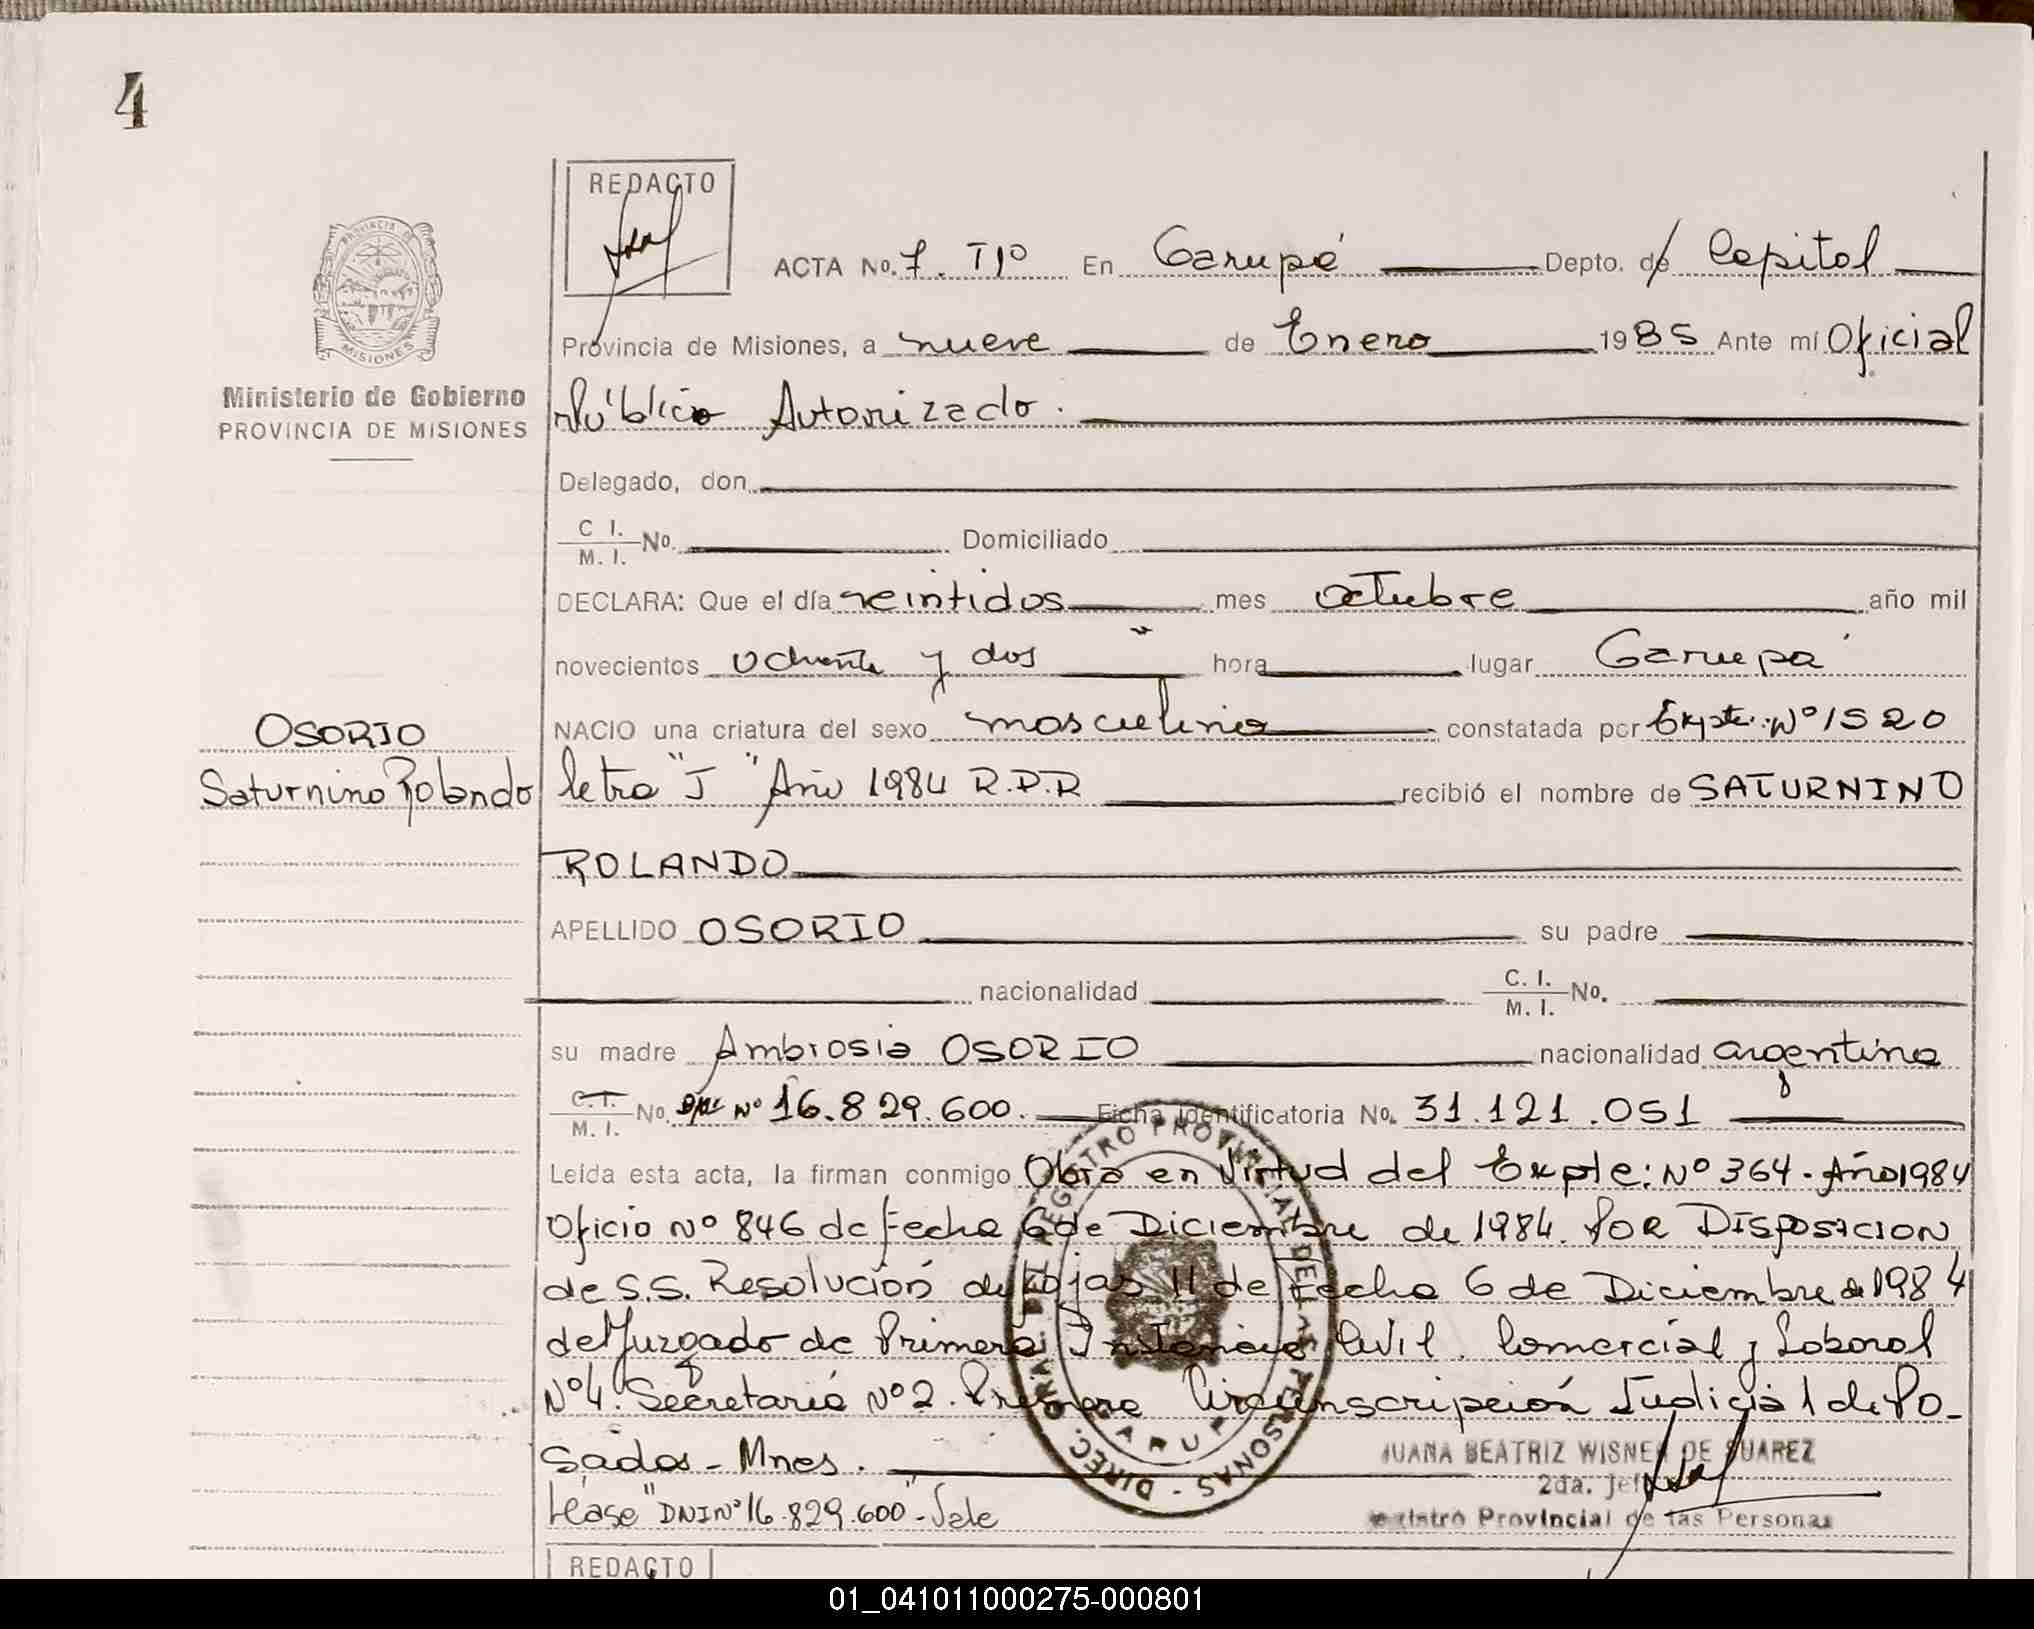 4
REDACTO
PROVINCIA DE MISIONES
Ministerio de Gobierno
PROVINCIA DE MISIONES
ACTA No. 7. Tº En Garupá Depto. d/ Capital
Provincia de Misiones, a nueve de Enero 1985 Ante mí Oficial
Público Autorizado.
Delegado, don
C I. / M. I. No. Domiciliado
DECLARA: Que el día veintidos mes octubre año mil
novecientos ochenta y dos hora lugar Garupá
OSORIO
Saturnino Rolando
NACIO una criatura del sexo masculino constatada por Expte: Nº 1520
letra "J" Año 1984 R.P.P. recibió el nombre de SATURNINO
ROLANDO
APELLIDO OSORIO su padre
nacionalidad C. I. / M. I. No.
su madre Ambrosia OSORIO nacionalidad argentina
C. I. / M. I. No. Nº 16.829.600. Ficha Identificatoria No. 31.121.051
Leída esta acta, la firman conmigo Obra en Virtud del Expte: Nº 364. Año 1984
Oficio Nº 846 de fecha 6 de Diciembre de 1984. POR DISPOSICION
de S.S. Resolución de Fojas 11 de Fecha 6 de Diciembre de 1984
del Juzgado de Primera Instancia Civil. Comercial y Laboral
Nº 4. Secretaria Nº 2. Primera Circunscripción Judicial de Po-
sadas - Mnes.
Léase "DNI Nº 16.829.600" - Vale
DIREC. GRAL. DEL REGISTRO PROVINCIAL DE LAS PERSONAS - GARUPA
JUANA BEATRIZ WISNER DE SUAREZ
2da. Jefe
Registro Provincial de las Personas
REDACTO
01_041011000275-000801